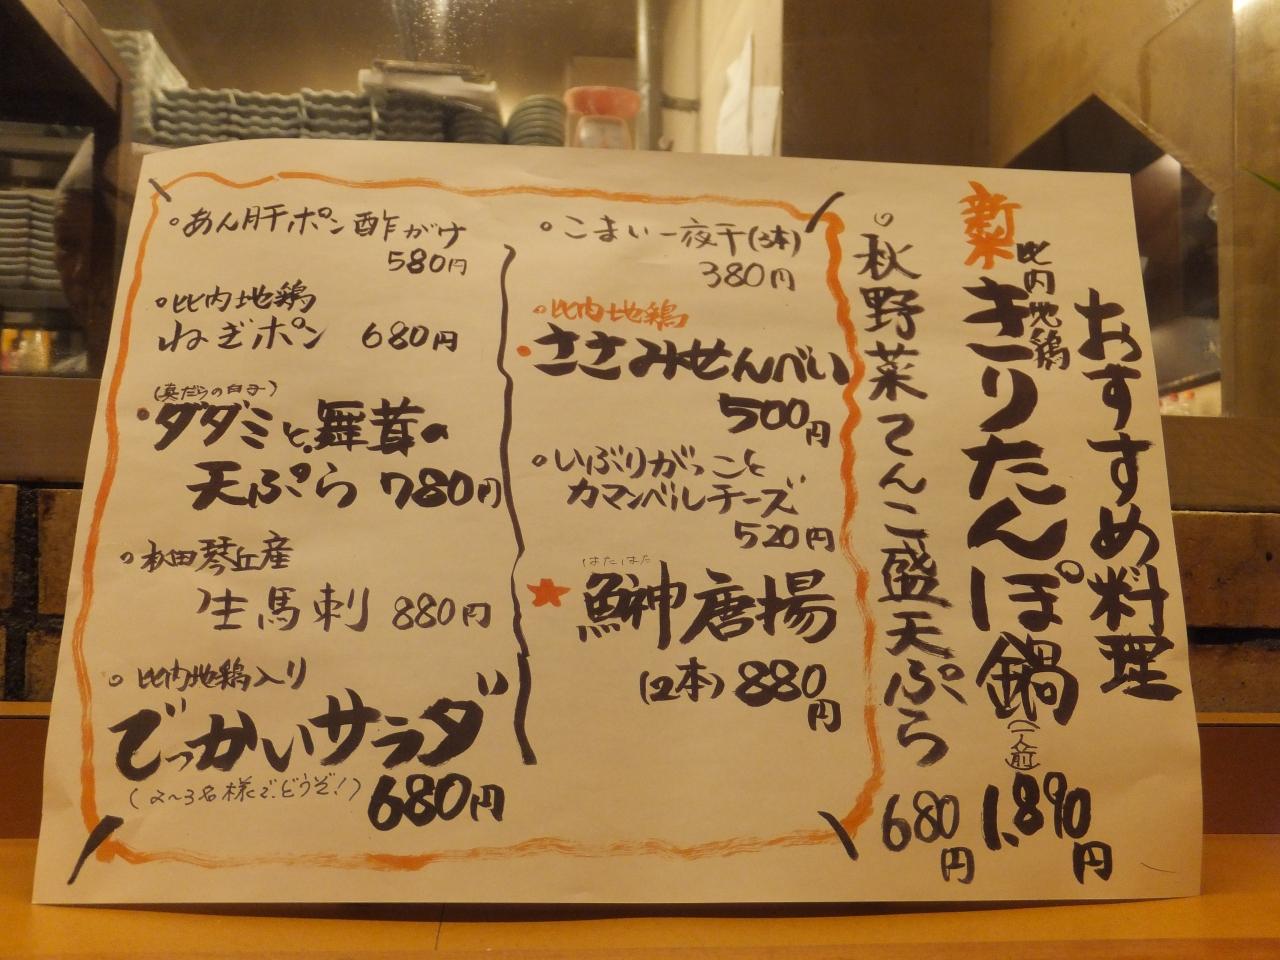 おすすめ料理
新米
比内地鶏
きりたんぽ鍋(一人前)1,890円
秋野菜てんこ盛天ぷら 680円
こまい一夜干(3本)
380円
比内地鶏
ささみせんべい
500円
いぶりがっこと
カマンベールチーズ
520円
はたはた
鰰唐揚
(2本)880円
あん肝ポン酢がけ
580円
比内地鶏
ねぎポン 680円
(真だらの白子)
ダダミと舞茸の
天ぷら 780円
秋田琴丘産
生馬刺 880円
比内地鶏入り
でっかいサラダ
(2〜3名様で、どうぞ!)680円